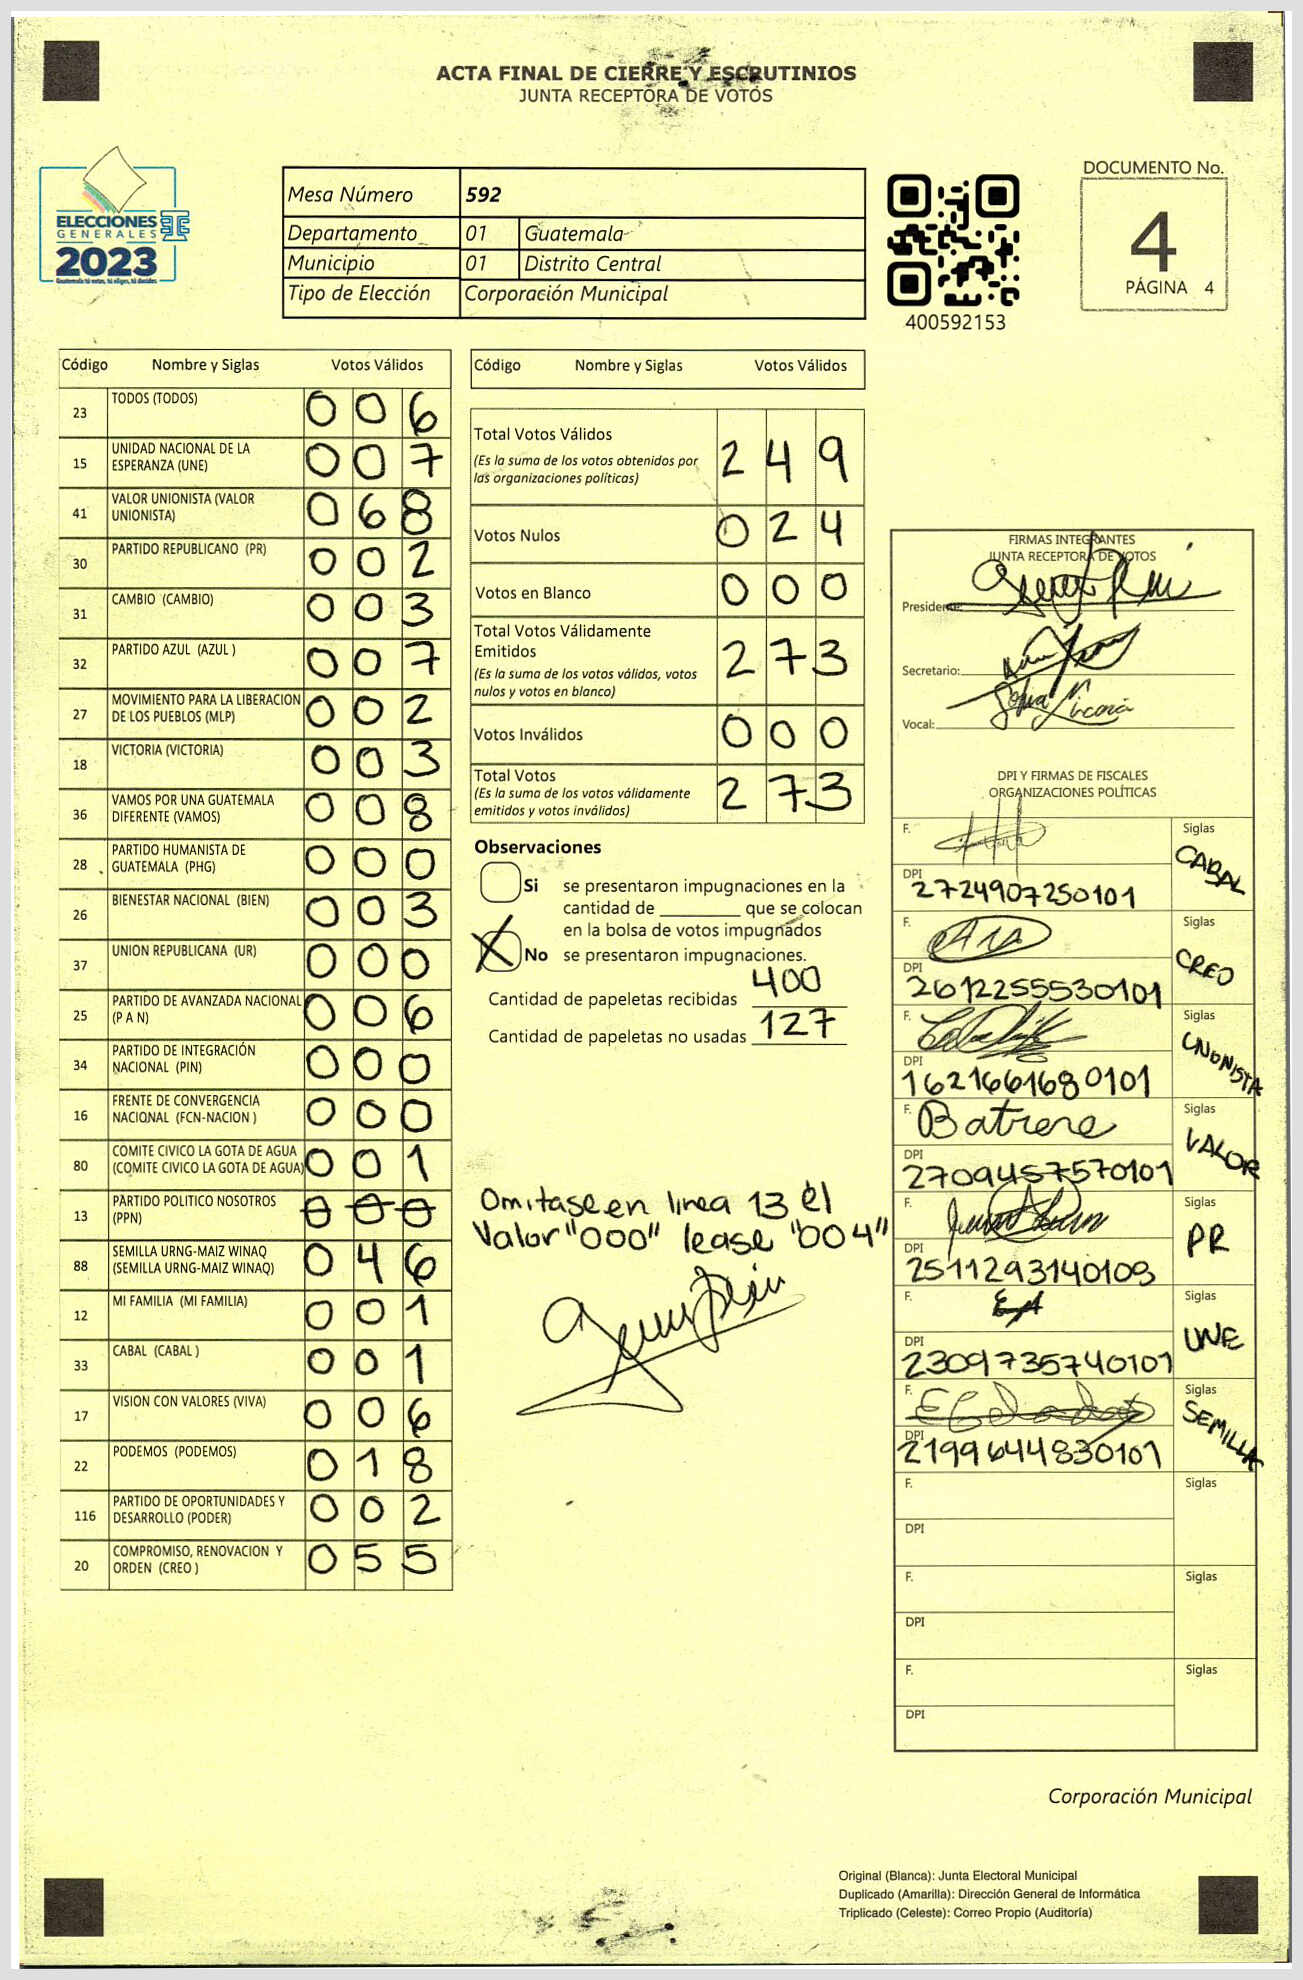 ACTA FINAL DE CIERRE Y ESCRUTINIOS
JUNTA RECEPTORA DE VOTOS
ELECCIONES
GENERALES
2023
Guatemala tú votas, tú eliges, tú decides
Mesa Número 592
Departamento 01 Guatemala
Municipio 01 Distrito Central
Tipo de Elección Corporación Municipal
400592153
DOCUMENTO No.
4
PÁGINA 4
Código Nombre y Siglas Votos Válidos
23 TODOS (TODOS) 0 0 6
15 UNIDAD NACIONAL DE LA ESPERANZA (UNE) 0 0 7
41 VALOR UNIONISTA (VALOR UNIONISTA) 0 6 8
30 PARTIDO REPUBLICANO (PR) 0 0 2
31 CAMBIO (CAMBIO) 0 0 3
32 PARTIDO AZUL (AZUL ) 0 0 7
27 MOVIMIENTO PARA LA LIBERACION DE LOS PUEBLOS (MLP) 0 0 2
18 VICTORIA (VICTORIA) 0 0 3
36 VAMOS POR UNA GUATEMALA DIFERENTE (VAMOS) 0 0 8
28 PARTIDO HUMANISTA DE GUATEMALA (PHG) 0 0 0
26 BIENESTAR NACIONAL (BIEN) 0 0 3
37 UNION REPUBLICANA (UR) 0 0 0
25 PARTIDO DE AVANZADA NACIONAL (P A N) 0 0 6
34 PARTIDO DE INTEGRACIÓN NACIONAL (PIN) 0 0 0
16 FRENTE DE CONVERGENCIA NACIONAL (FCN-NACION ) 0 0 0
80 COMITE CIVICO LA GOTA DE AGUA (COMITE CIVICO LA GOTA DE AGUA) 0 0 1
13 PARTIDO POLITICO NOSOTROS (PPN) 0 0 0
88 SEMILLA URNG-MAIZ WINAQ (SEMILLA URNG-MAIZ WINAQ) 0 4 6
12 MI FAMILIA (MI FAMILIA) 0 0 1
33 CABAL (CABAL ) 0 0 1
17 VISION CON VALORES (VIVA) 0 0 6
22 PODEMOS (PODEMOS) 0 1 8
116 PARTIDO DE OPORTUNIDADES Y DESARROLLO (PODER) 0 0 2
20 COMPROMISO, RENOVACION Y ORDEN (CREO ) 0 5 5
Código Nombre y Siglas Votos Válidos
Total Votos Válidos 2 4 9
(Es la suma de los votos obtenidos por
las organizaciones políticas)
Votos Nulos 0 2 4
Votos en Blanco 0 0 0
Total Votos Válidamente
Emitidos 2 7 3
(Es la suma de los votos válidos, votos
nulos y votos en blanco)
Votos Inválidos 0 0 0
Total Votos 2 7 3
(Es la suma de los votos válidamente
emitidos y votos inválidos)
Observaciones
Si se presentaron impugnaciones en la
cantidad de ________ que se colocan
en la bolsa de votos impugnados
X No se presentaron impugnaciones.
Cantidad de papeletas recibidas 400
Cantidad de papeletas no usadas 127
Omitase en linea 13 el
Valor "000" lease "004"
FIRMAS INTEGRANTES
JUNTA RECEPTORA DE VOTOS
Presidente:
Secretario:
Vocal:
DPI Y FIRMAS DE FISCALES
ORGANIZACIONES POLÍTICAS
F. Siglas CABAL
DPI 2724907250101
F. Siglas CREO
DPI 2612255530101
F. Siglas UNONISTA
DPI 1621661680101
F. Siglas VALOR
DPI 2709457570101
F. Siglas PR
DPI 2511293140103
F. Siglas UNE
DPI 2309735740101
F. Siglas SEMILLA
DPI 2199644830101
F. Siglas
DPI
F. Siglas
DPI
F. Siglas
DPI
Corporación Municipal
Original (Blanca): Junta Electoral Municipal
Duplicado (Amarilla): Dirección General de Informática
Triplicado (Celeste): Correo Propio (Auditoría)